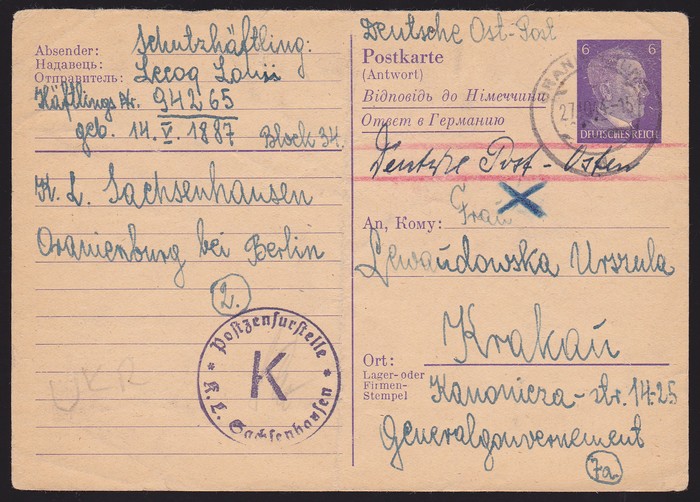 Absender:
Надавець:
Отправитель:
Schutzhäftling:
Lecoq Louis
Häftlings Nr. 94265
geb. 14. V. 1887 Block 34.
K. L. Sachsenhausen
Oranienburg bei Berlin
2.
Postzensurstelle
K
K.L. Sachsenhausen
UKR
Deutsche Ost-Post
Postkarte
(Antwort)
Відповідь до Німеччини
Ответ в Германию
6 6
DEUTSCHES REICH
Deutsche Post-Osten
Frau
An, Кому:
Lewandowska Urszula
Krakau
Ort:
Lager- oder
Firmen-
Stempel
Kanonicza-str. 14-25
Generalgouvernement
7a